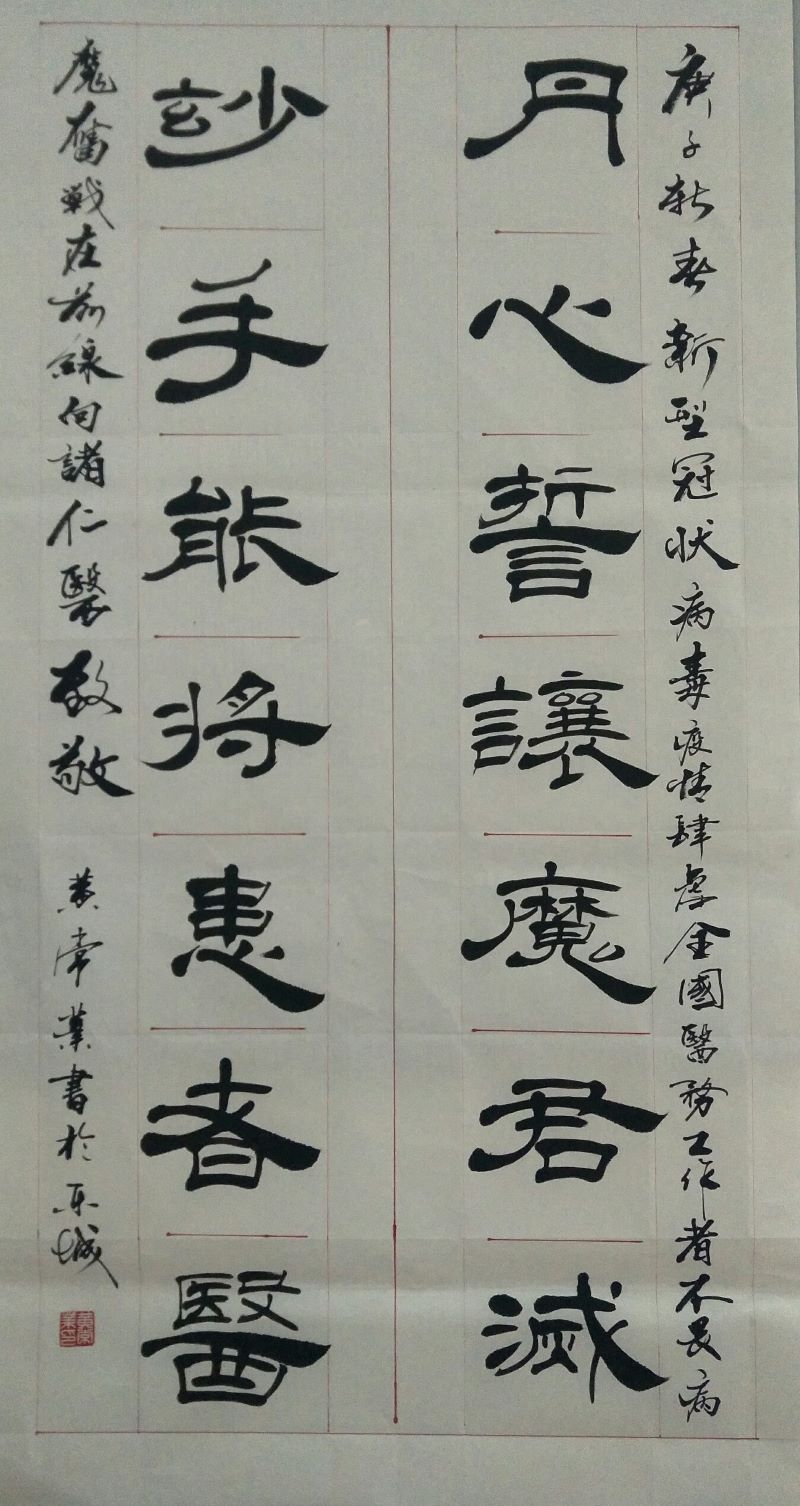 庚子新春新型冠状病毒疫情肆虐全國醫務工作者不畏病
丹心誓讓魔君滅
玅手能将患者醫
魔奮戰在前線向諸仁醫致敬
黄常業書於东城
黄常業印